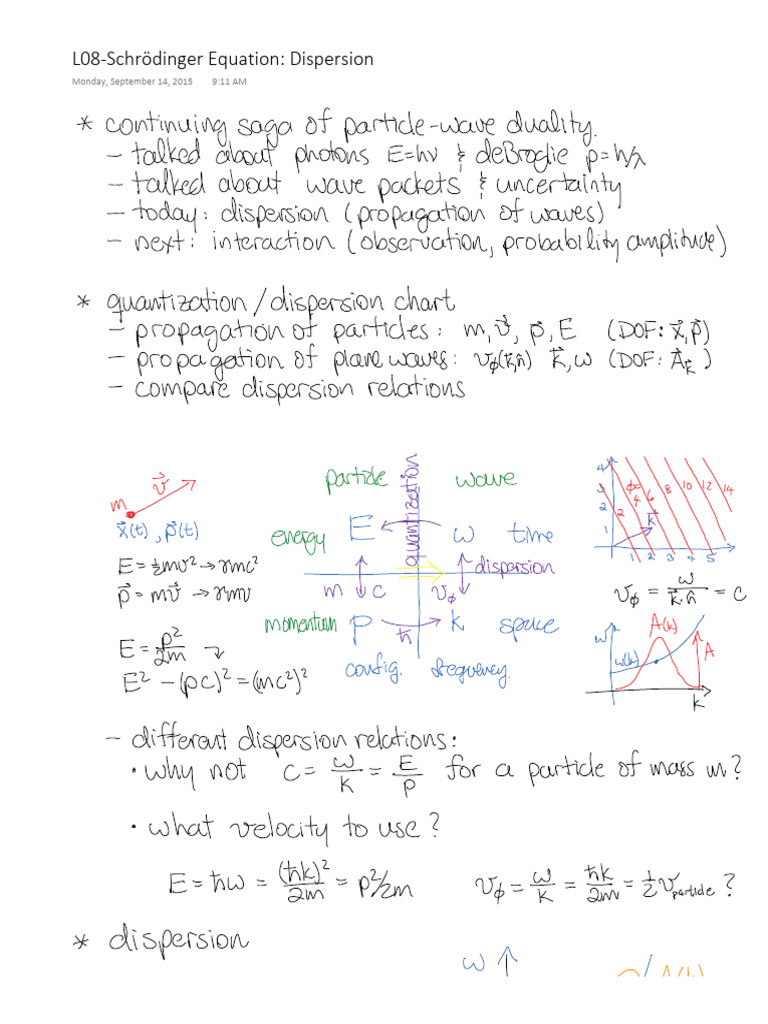 L08-Schrödinger Equation: Dispersion
Monday, September 14, 2015 9:11 AM
* continuing saga of particle-wave duality.
- talked about photons E=hν & deBroglie p=h/λ
- talked about wave packets & uncertainty
- today: dispersion (propagation of waves)
- next: interaction (observation, probability amplitude)
* quantization/dispersion chart
- propagation of particles: m, v⃗, p⃗, E (DOF: x⃗, p⃗)
- propagation of plane waves: v_ϕ(k̂,n̂) k⃗, ω (DOF: A⃗_k⃗)
- compare dispersion relations
particle quantization wave
m v⃗
x⃗(t), p⃗(t)
energy E ω time
E = ½mv² → γmc²
m c v_ϕ dispersion
p⃗ = mv⃗ → γmv
momentum p ħ k space
E = p²/2m ↘
config. frequency.
E² − (pc)² = (mc²)²
4 3 2 1
ϕ= 2 4 6 8 10 12 14
k⃗
1 2 3 4 5
v_ϕ = ω/(k⃗·n̂) = c
ω A(k) A
ω(k)
k
- different dispersion relations:
• why not c = ω/k = E/p for a particle of mass m?
• what velocity to use?
E = ħω = (ħk)²/2m = p²/2m v_ϕ = ω/k = ħk/2m = ½ v_particle ?
* dispersion
ω ↑ A(k)